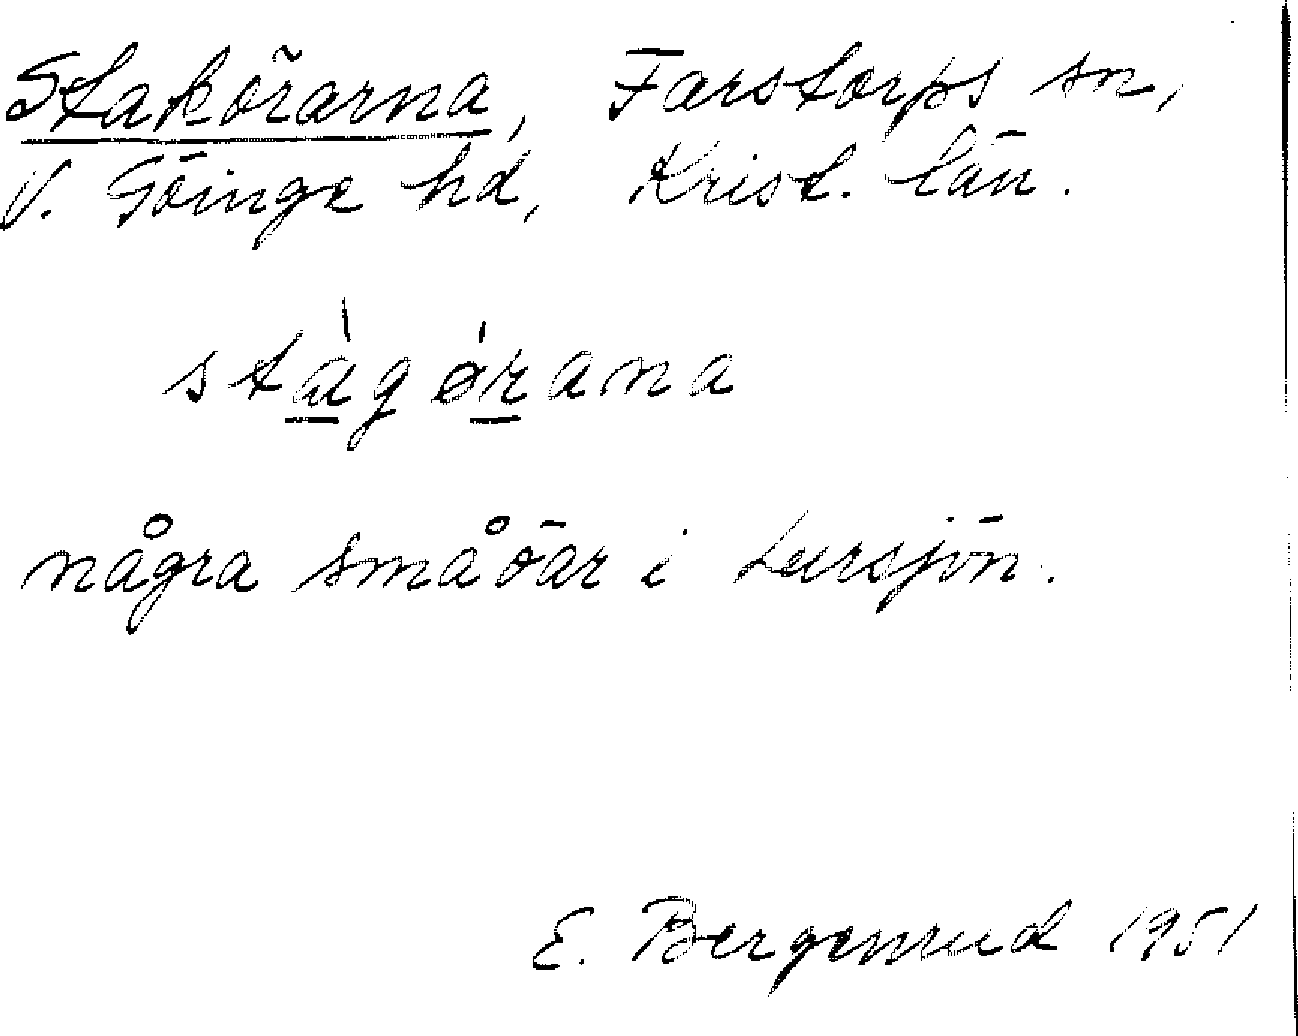 Stakörarna, Farstorps sn,
V. Göinge hd, Krist. län.
stàgǿrana
några småöar i Lursjön.
E. Bergemrud 1951